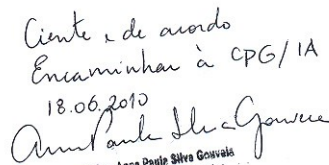 Ciente e de acordo
Encaminhar à CPG/IA
18.06.2010
Ana Paula Silva Gouveia
Anna Paula Silva Gouveia